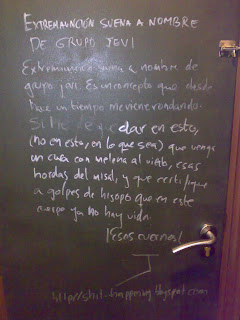 EXTREMAUNCIÓN SUENA A NOMBRE
DE GRUPO JEVI
Extremaunción suena a nombre de
grupo jevi. Es un concepto que desde
hace un tiempo me viene rondando.
Si he de quedar en esto,
(no en esto, en lo que sea) que venga
un cura con melena al viento, esas
hordas del misal, y que certifique
a golpes de hisopo que en este
cuerpo ya no hay vida
¡Esos cuernos!
http://shit-happening.blogspot.com